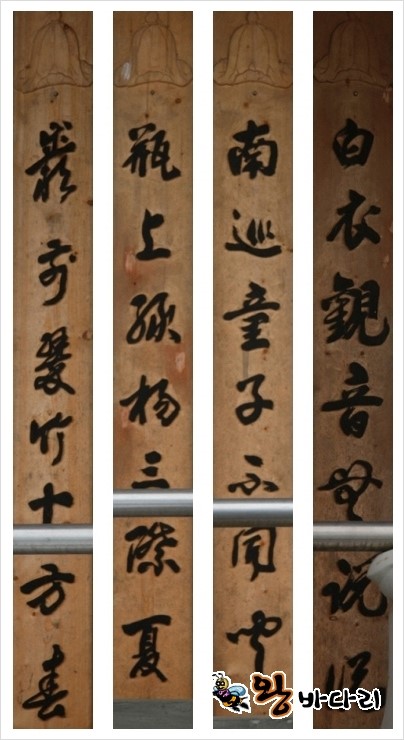 白衣觀音無說說
南巡童子不聞聞
瓶上綠楊三際夏
巖前翠竹十方春
왕바다리